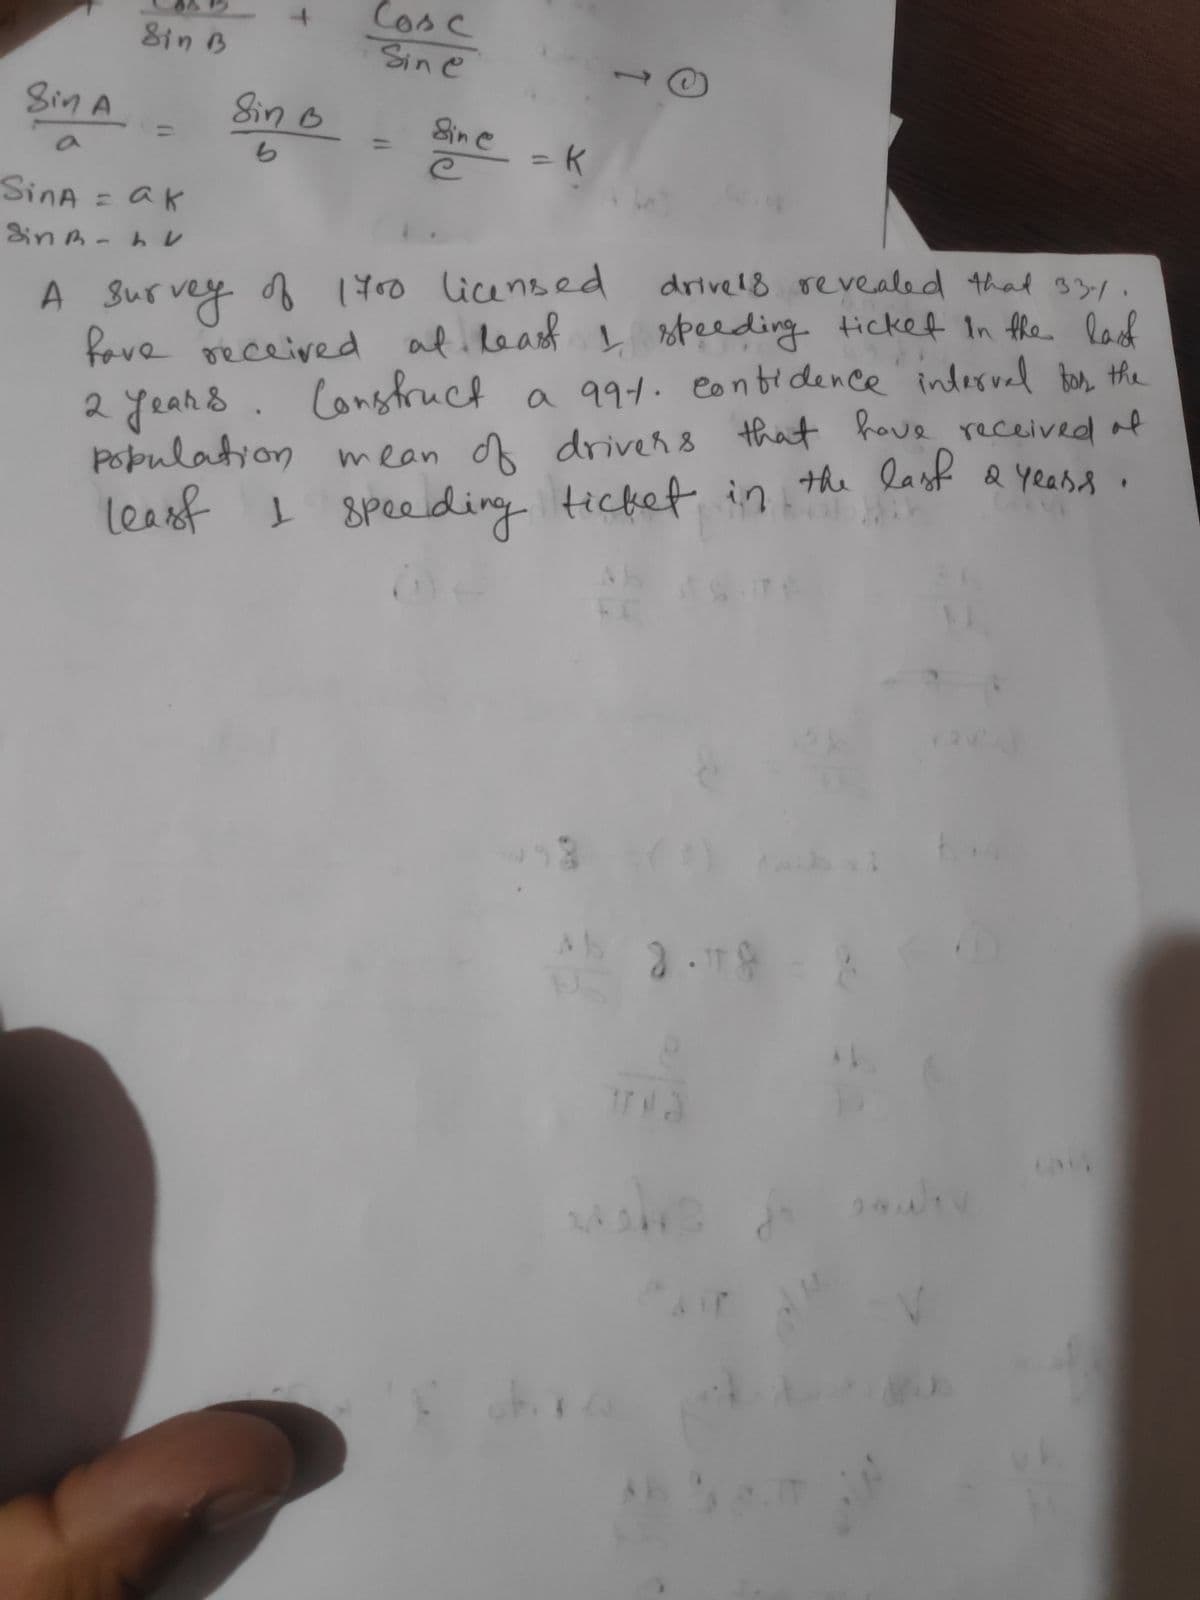 Sin B + Cos C
Sin C → ①
Sin A / a = Sin B / b = Sin C / c = K
Sin A = a K
Sin B =
A survey of 1700 licensed drivers revealed that 33%.
have received at least 1 speeding ticket in the last
2 years. Construct a 99%. confidence interval for the
population mean of drivers that have received at
least 1 speeding ticket in the last 2 years.